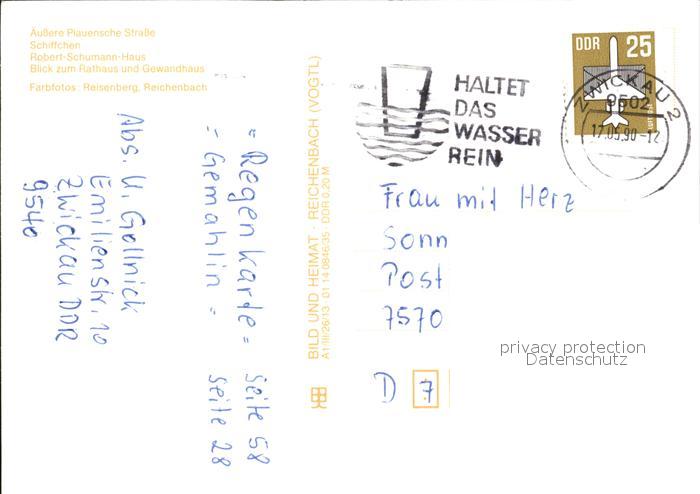 Äußere Plauensche Straße
Schiffchen
Robert-Schumann-Haus
Blick zum Rathaus und Gewandhaus
Farbfotos: Reisenberg, Reichenbach
= Regenkarte = Seite 58
= Gemahlin = Seite 28
Abs. U. Gollnick
Emilienstr. 10
Zwickau DDR
9540
BILD UND HEIMAT · REICHENBACH (VOGTL)
A1/III/26/13 01 14 0846/35 · DDR 0,20 M
HALTET
DAS
WASSER
REIN
DDR 25
ZWICKAU 2
9502
17.05.90-12
Frau mit Herz
Sonn
Post
7570
D 7
privacy protection
Datenschutz